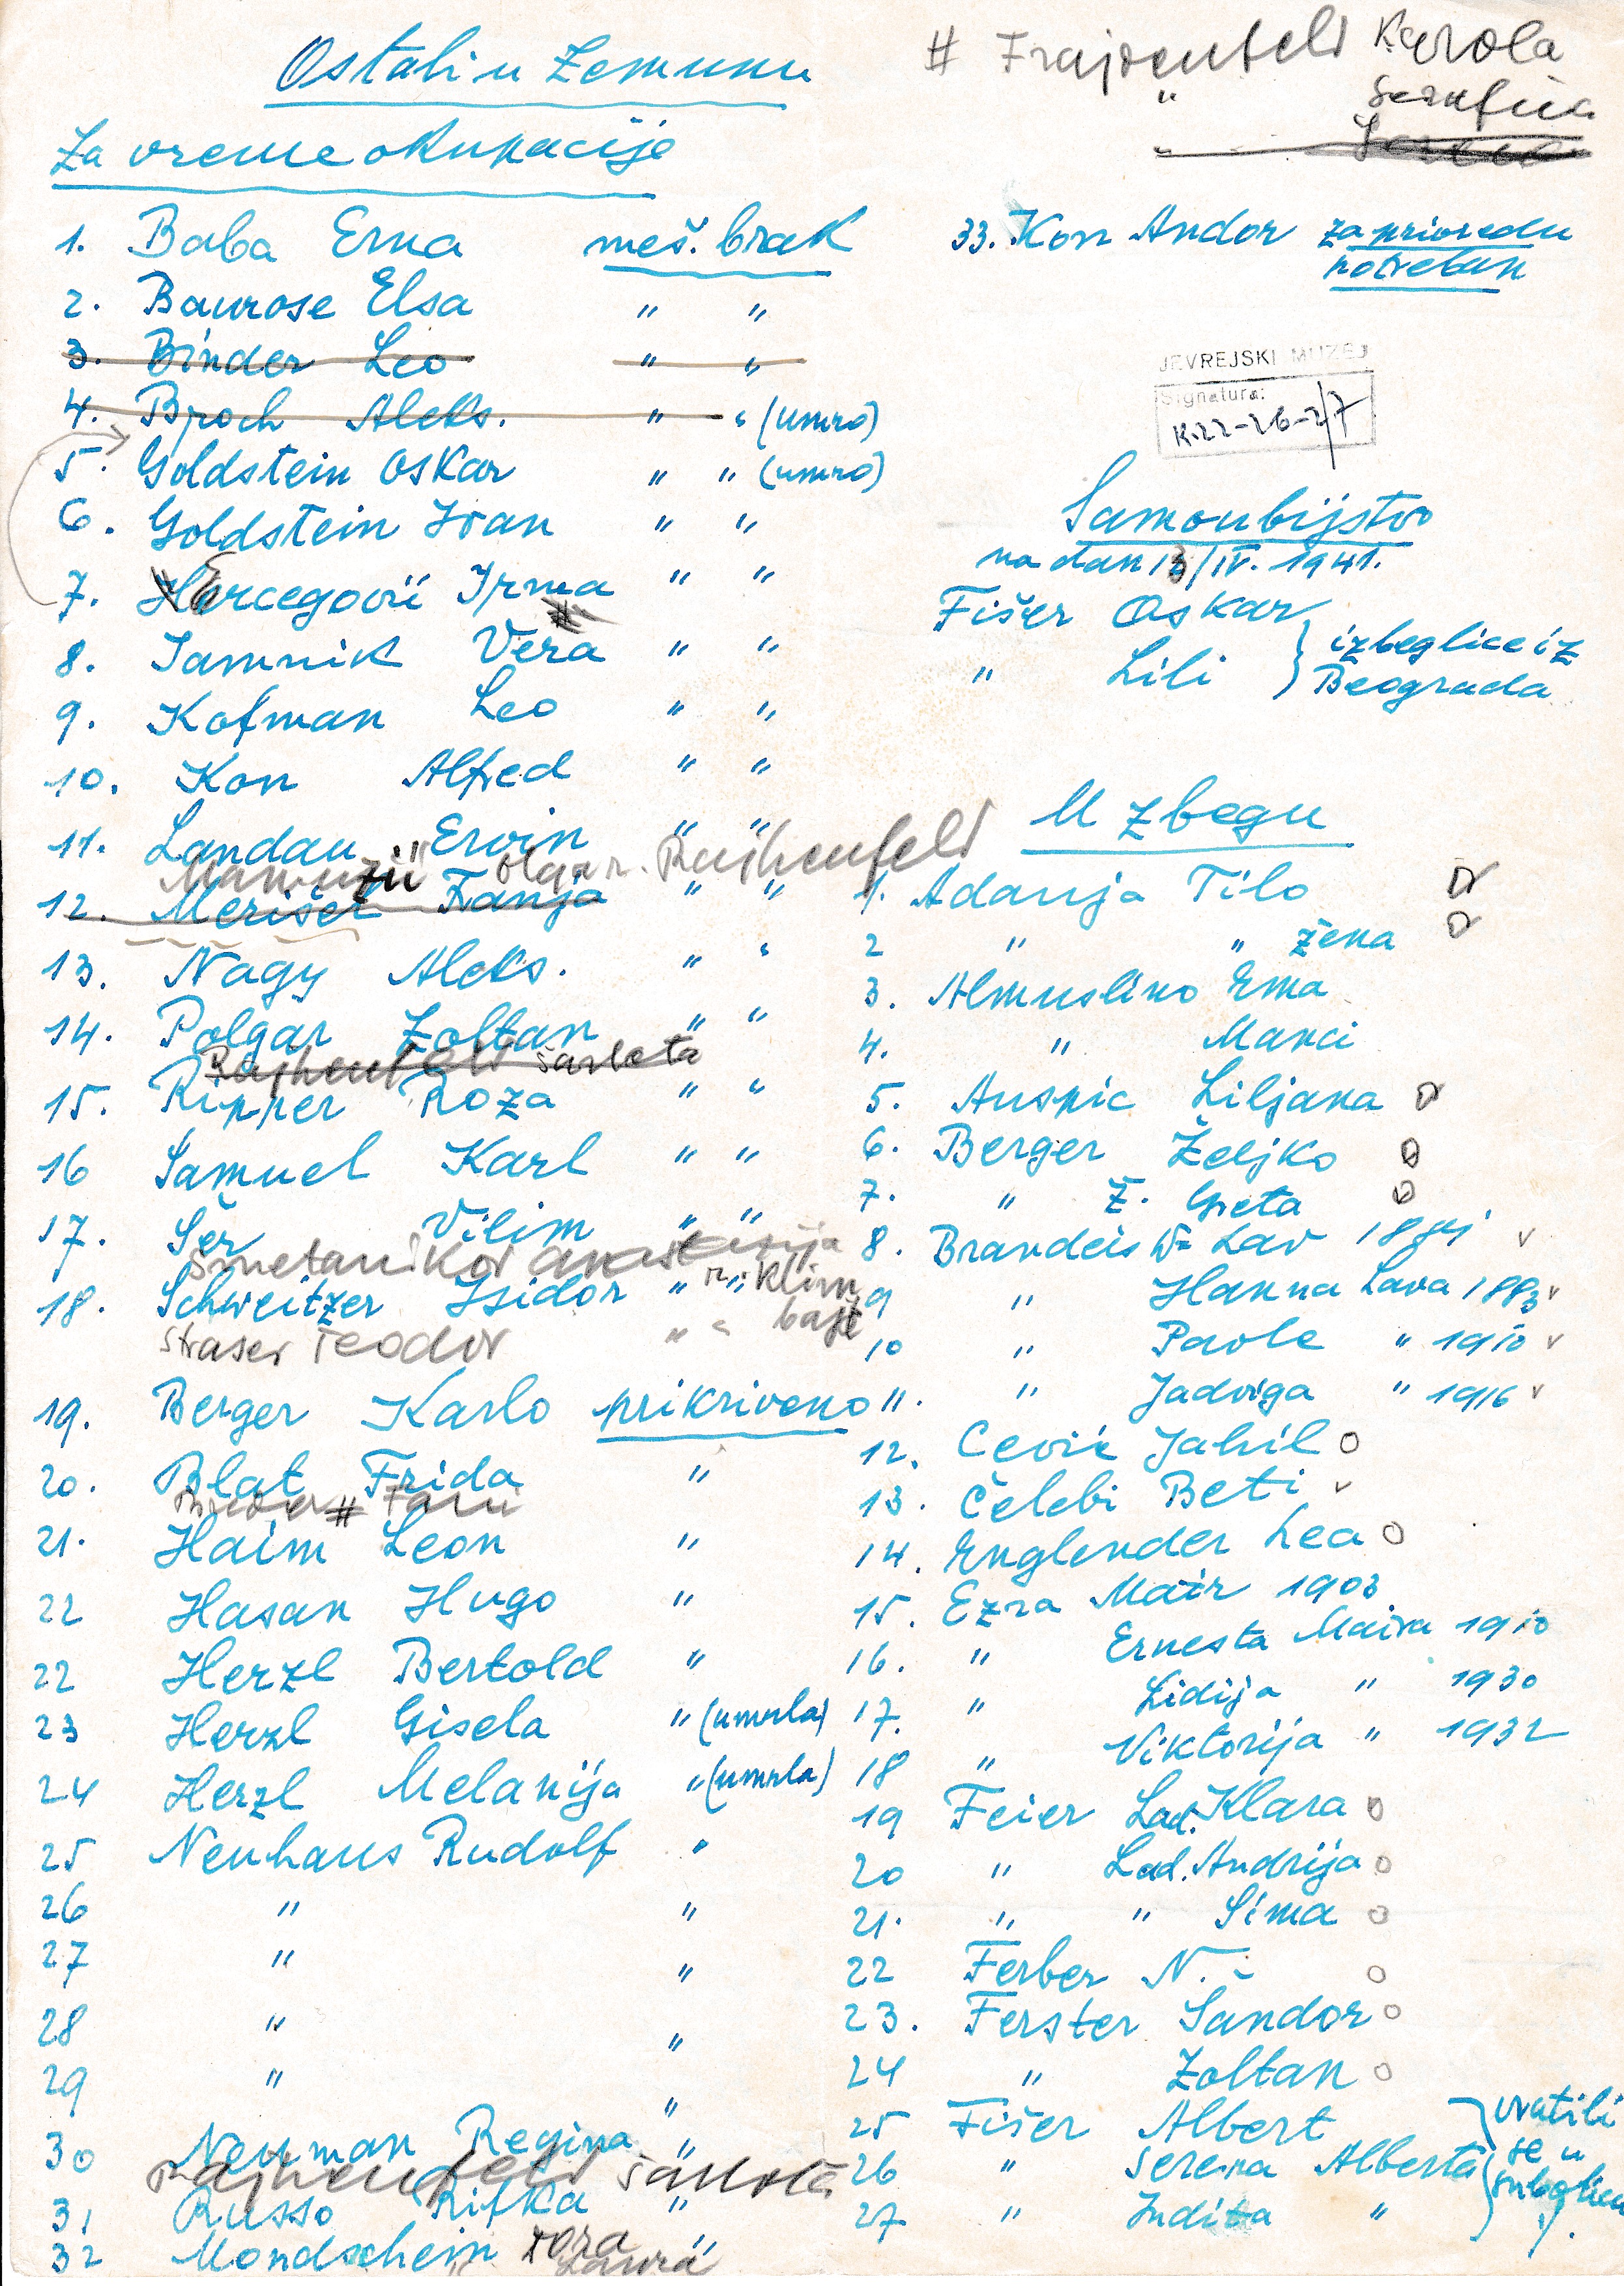 Ostali u Zemunu
Za vreme okupacije
1. Baba Erna meš. brak
2. Baurose Elsa " "
3. Binder Leo " "
4. Broch Aleks. " " (umro)
5. Goldstein Oskar " " (umro)
6. Goldstein Ivan " "
7. Hercegović Irma " "
8. Jamnik Vera " "
9. Kofman Leo " "
10. Kon Alfred " "
11. Landau Ervin " "
Olga r. Rajhenfeld
12. Merišer Fanja " "
13. Nagy Aleks. " "
14. Polgar Zoltan " "
Rajhenfeld Šarlota
15. Ripper Roza " "
16 Samuel Karl " "
17. Šer Vilim " "
Smetanikov Anastasija
18. Schweitzer Isidor " "
Štraser Teodor " "
19. Berger Karlo prikriveno
20. Blat Frida "
Binder # Fani
21. Haim Leon "
22 Hasan Hugo "
22 Herzl Bertold "
23 Herzl Gisela " (umrla)
24 Herzl Melanija " (umrla)
25 Neuhaus Rudolf "
26 " "
27 " "
28 " "
29 " "
30 Neuman Regina "
Rajhenfeld Šarlota
31 Russo Rifka "
32 Mondschein "
# Frajdenfeld Karola
" Serafina
33. Kon Andor za privredu
potreban
JEVREJSKI MUZEJ
Signatura:
K.22-2б-2/7
Samoubijstvo
na dan 13/IV. 1941.
Fišer Oskar
" Lili
izbeglice iz
Beograda
U zbegu
1. Adanja Tilo
2 " " žena
3. Almuslino Ema
4. " Manci
5. Auspic Liljana
6. Berger Željko
7. " Ž. Greta
8. Brandeis Lav
9 " Hanna Lava 1883
10 " Pavle " 1910
11. " Jadviga " 1916
12. Cević Jahil
13. Čelebi Beti
14. Englender Lea
15. Ezra Mair 1903
16. " Ernesta Maira 1910
17. " Lidija " 1930
18 " Viktorija " 1932
19 Feier Lad. Klara
20 " Lad. Andrija
21. " " Sima
22 Ferber N.
23. Ferster Šandor
24 " Zoltan
25 Fišer Albert
26 " Serena Alberta
27 " Judita "
vratili
se u